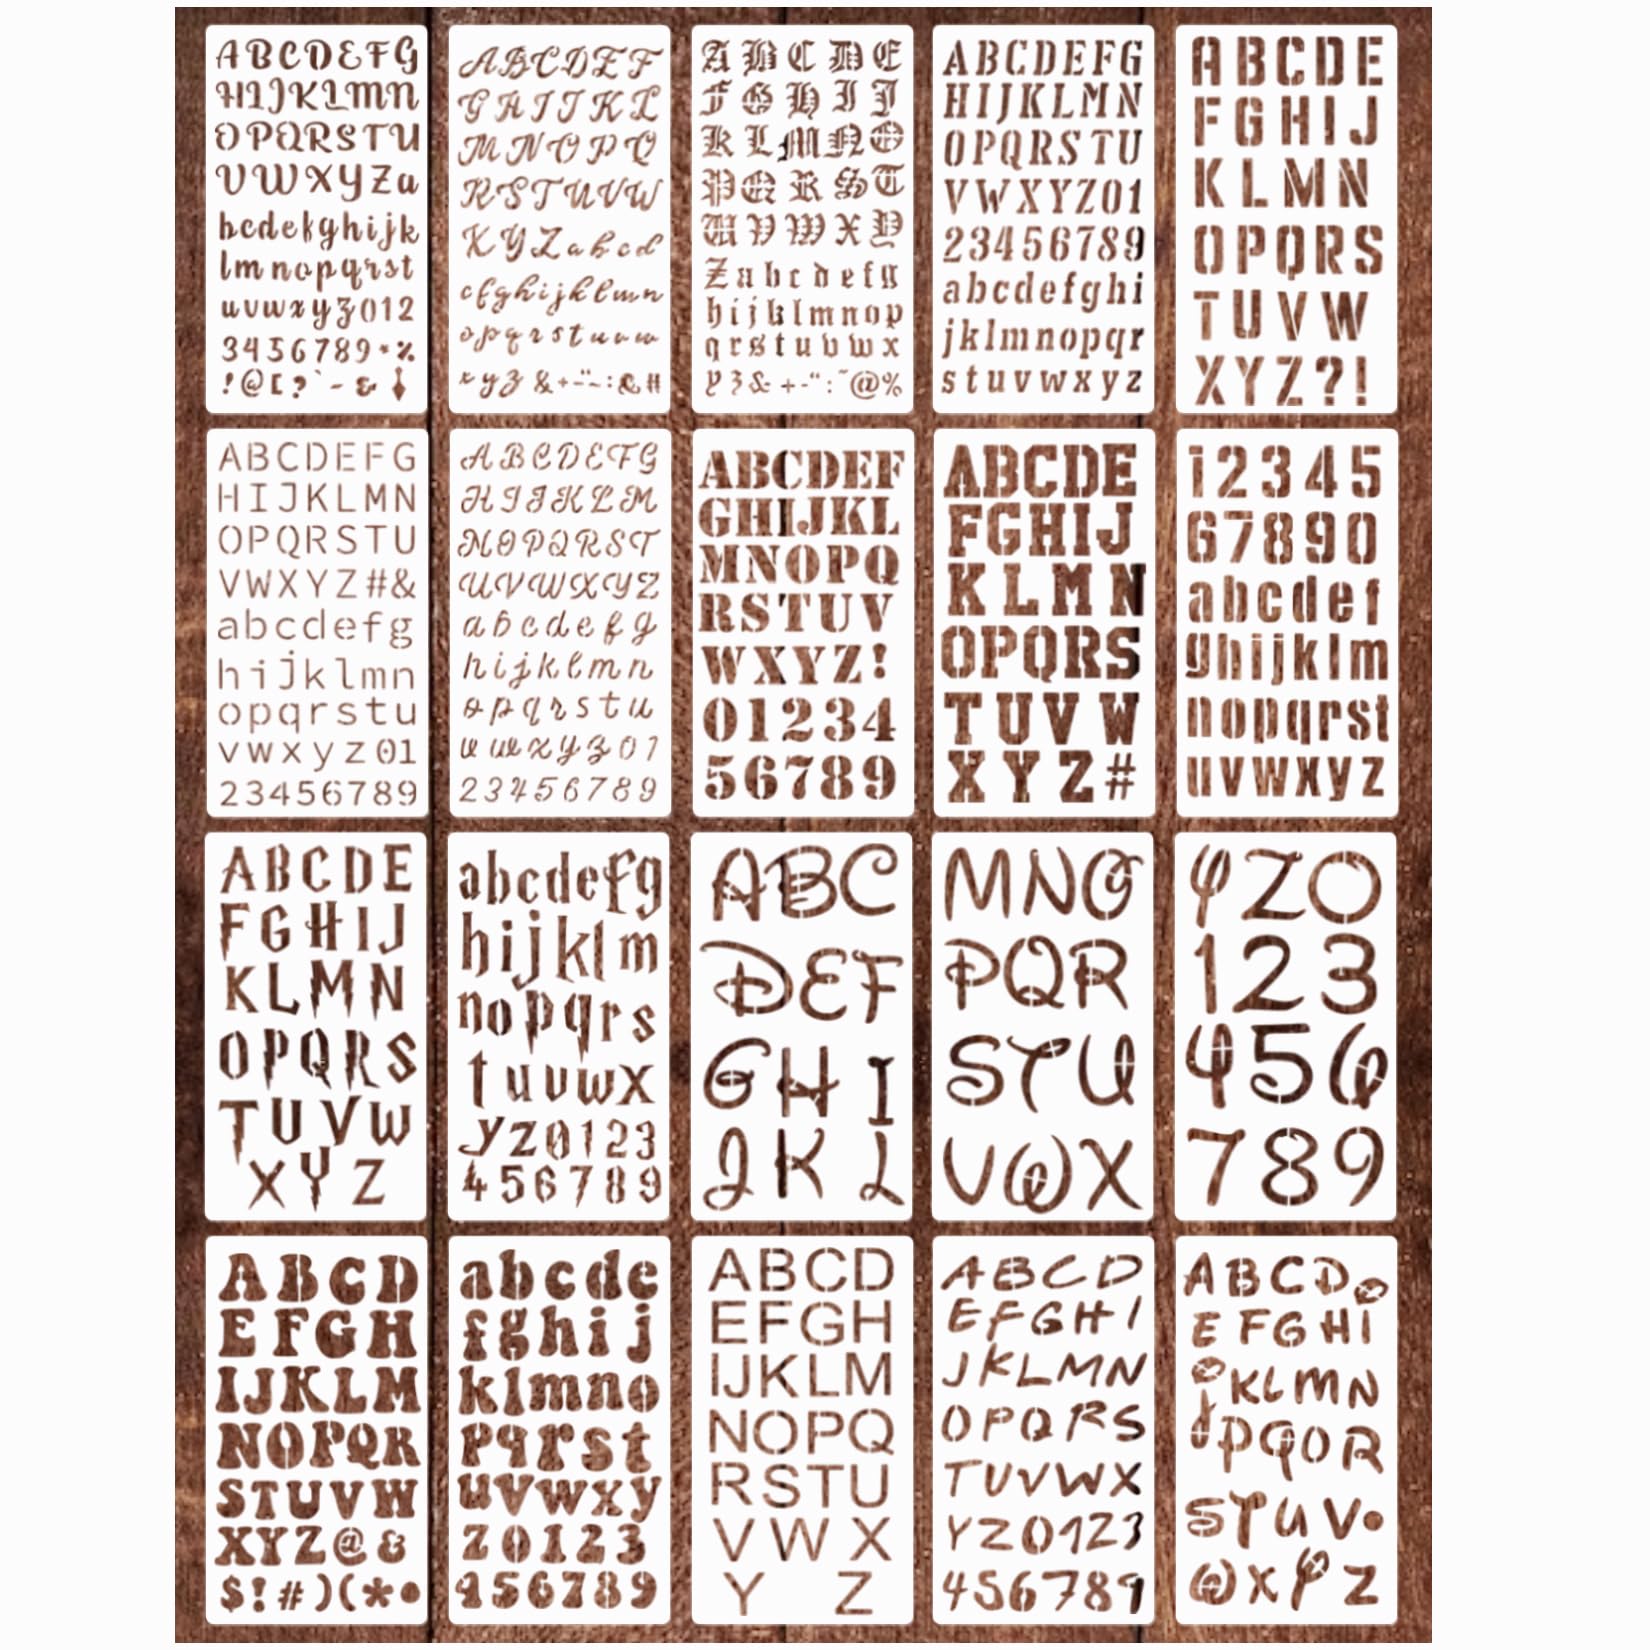 ABCDEFG
HIJKLMN
OPQRSTU
VWXYZa
bcdefghijk
lmnopqrst
uvwxyz012
3456789*%
!@[?`~&
ABCDEF
GHIJKL
MNOPQ
RSTUVW
XYZabcd
efghijklmn
opqrstuvw
xyz&+-"~:&#
ABCDE
FGHIJ
KLMNO
PQRST
UVWXY
Zabcdefg
hijklmnop
qrstuvwx
yz&+-":~@%
ABCDEFG
HIJKLMN
OPQRSTU
VWXYZ01
23456789
abcdefghi
jklmnopqr
stuvwxyz
ABCDE
FGHIJ
KLMN
OPQRS
TUVW
XYZ?!
ABCDEFG
HIJKLMN
OPQRSTU
VWXYZ#&
abcdefg
hijklmn
opqrstu
vwxyz01
23456789
ABCDEFG
HIJKLM
NOPQRST
UVWXYZ
abcdefg
hijklmn
opqrstu
vwxyz01
23456789
ABCDEF
GHIJKL
MNOPQ
RSTUV
WXYZ!
01234
56789
ABCDE
FGHIJ
KLMN
OPQRS
TUVW
XYZ#
12345
67890
abcdef
ghijklm
nopqrst
uvwxyz
ABCDE
FGHIJ
KLMN
OPQRS
TUVW
XYZ
abcdefg
hijklm
nopqrs
tuvwx
yz0123
456789
ABC
DEF
GHI
JKL
MNO
PQR
STU
VWX
YZO
123
456
789
ABCD
EFGH
IJKLM
NOPQR
STUVW
XYZ@&
$!#)(*•
abcde
fghij
klmno
pqrst
uvwxy
z0123
456789
ABCD
EFGH
IJKLM
NOPQ
RSTU
VWX
YZ
ABCD
EFGHI
JKLMN
OPQRS
TUVWX
YZ0123
456789
ABCD
EFGHi
jKLMN
PQOR
STUV•
WXYZ